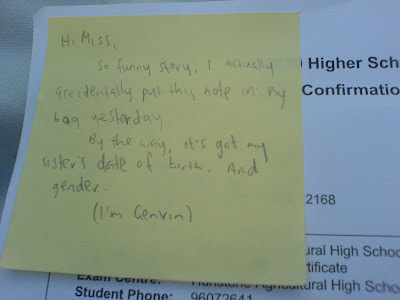 Hi Miss,
So funny story, I actually
accidentally put this note in my
bag yesterday
By the way, it's got my
sister's date of birth. And
gender.
(I'm
) Higher Scho
Confirmatio
2168
ural High Schoo
rtificate
Exam Centre: Hurlstone Agricultural High Schoo
Student Phone: 96072641